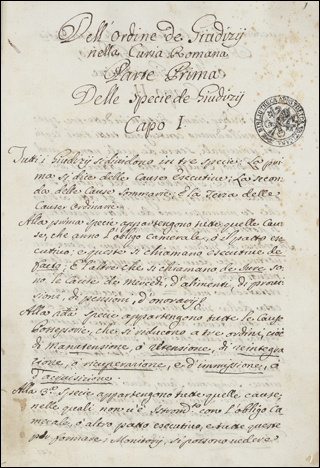 Dell'Ordine de Giudizij
nella Curia Romana
Parte Prima
Delle Specie de Giudizij
Capo I
Tutti i Giudizij si dividono in tre specie; La pri-
ma si dice delle Cause Esecutive; La secon-
da delle Cause Sommarie, e la Terza delle
Cause Ordinarie.
Alla prima specie appartengono tutte quelle Cau-
se, che anno l'obligo Camerale, o il patto ese-
cutivo, e queste si chiamano esecutive de
facto; E l'altre che si chiamano de Jure so-
no le Cause de mercedi, d'alimenti, di
di pensioni, d'onorarij.
Alla 2da specie appartengono tutte le Cause
che si riducono a tre ordini, cioè
di Manutensione, o ritensione, di reintegra-
zione, o ricuperazione, e d'immissione, o
d'acquisizione.
Alla 3a specie appartengono tutte quelle cause,
nelle quali non v'è con l'obligo Ca-
merale, o altro patto esecutivo, e tutte queste
per formare i Monitorij, si possono vedere